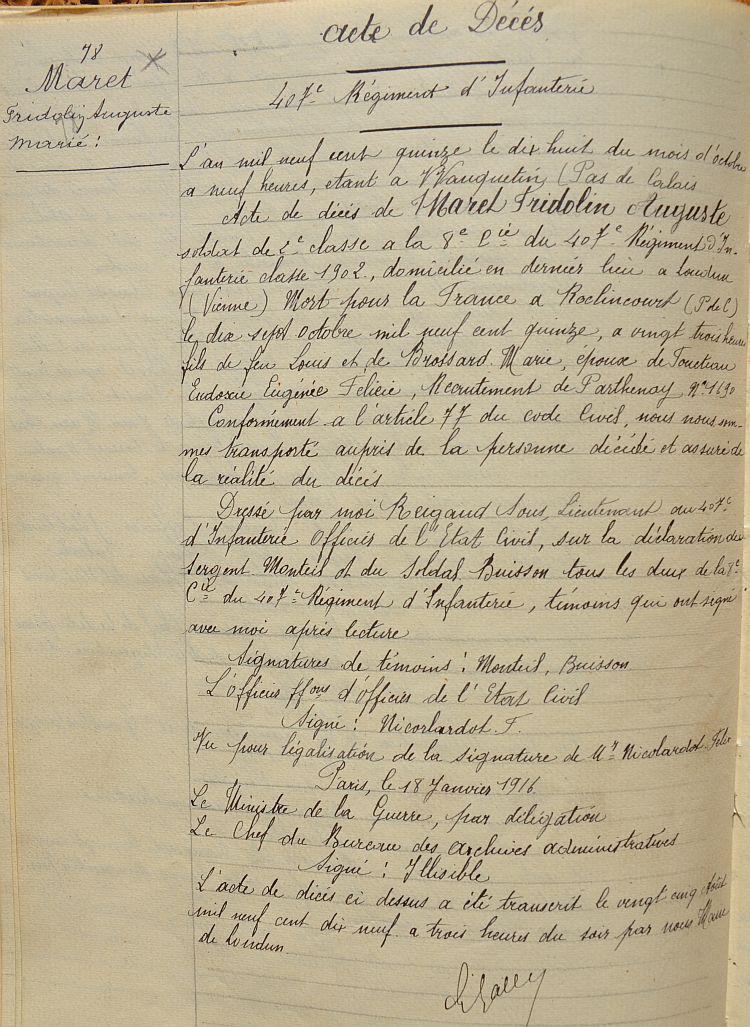 acte de Décès
78
Maret
Fridolin Auguste
marié :
407e Régiment d'Infanterie
L'an mil neuf cent quinze le dix huit du mois d'octobre
a neuf heures, etant a Wanquetin (Pas de Calais
Acte de décès de Maret Fridolin Auguste
soldat de 2e classe a la 8e Cie du 407e Régiment d'In-
fanterie classe 1902, domicilié en dernier lieu a Loudun
(Vienne) Mort pour la France a Roclincourt (P de C)
le dix sept octobre mil neuf cent quinze, a vingt trois heures
fils de feu Louis et de Brossard Marie, époux de
Eudoxie Eugénée Felicie, Recrutement de Parthenay, No 1690
Conformément a l'article 77 du code Civil, nous nous som-
mes transporté aupris de la personne décidé et assuré de
la réalité du décis
Dressé par moi Reigaud Sous, Lieutenant au 407e
d'Infanterie Officier de l'Etat Civil, sur la déclaration du
Sergent Monteil et du Soldat Buisson tous les deux de la 8e
Cie du 407e Régiment d'Infanterie, témoins qui ont signé
avec moi après lecture
Signatures de témoins : Monteil, Buisson
L'officier ffons d'officier de l'Etat Civil
Signé : Nicorlardot. F.
Vu pour légalisation de la signature de Mr Nicolardot
Paris, le 18 Janvier 1916
Le Ministre de la Guerre, par déligation
Le Chef du Bureau des archives administratives
Signé : Illisible
L'acte de dicés ci dessus a été transcrit le vingt cinq Août
mil neuf cent dix neuf a trois heures du soir par nous Maire
de Loudun.